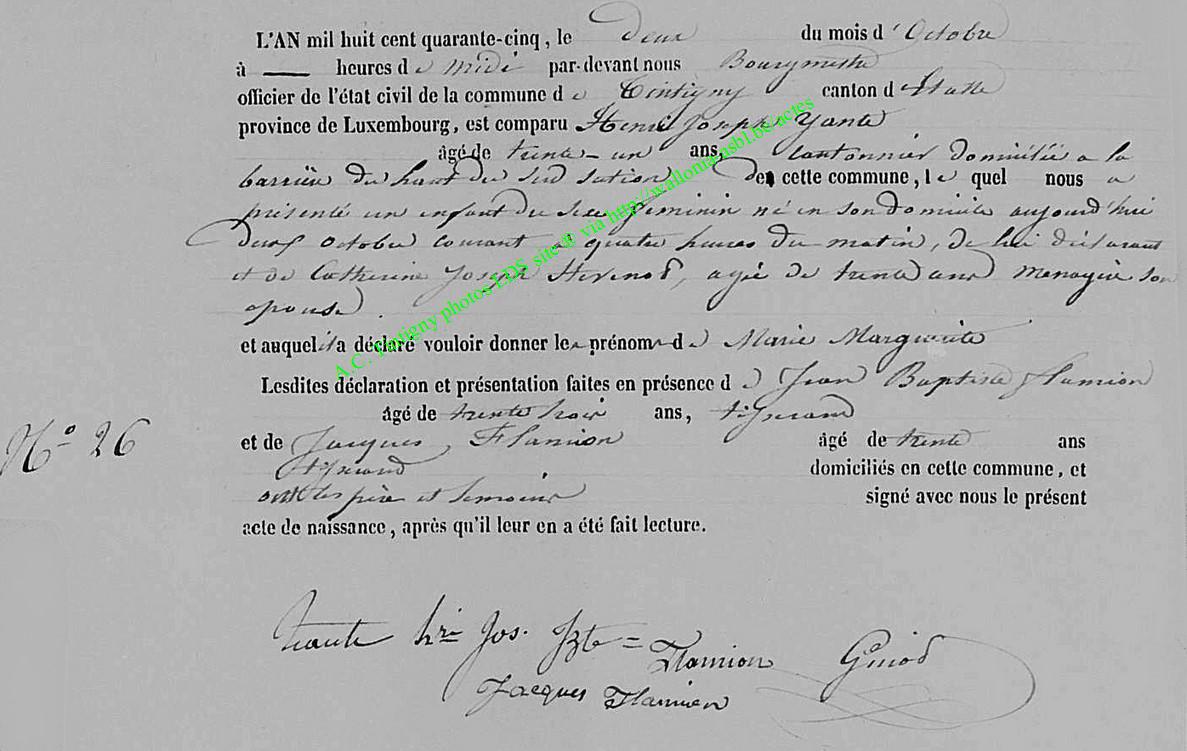 L'AN mil huit cent quarante-cinq, le deux du mois d'Octobre
à — heures de midi par-devant nous Bourgmestre
officier de l'état civil de la commune de Tintigny canton d'Etalle
province de Luxembourg, est comparu Henri Joseph Yante
âgé de trente-un ans, Cantonnier domicilié a la
barrière du haut du sud de cette commune, le quel nous a
présenté un enfant du sexe feminin né en son domicile aujourd'hui
deux octobre courant a quatre heures du matin, de lui déclarant
et de Catherine Joseph, agée de trente ans menagère son
epouse.
et auquel il a déclaré vouloir donner les prénoms de Marie Marguerite
Lesdites déclaration et présentation faites en présence de Jean Baptiste Flamion
âgé de trente trois ans, tisserand
N° 26
et de Jacques Flamion âgé de trente ans
tisserand domiciliés en cette commune, et
ont les père et temoins signé avec nous le présent
acte de naissance, après qu'il leur en a été fait lecture.
hri Jos. Bte = Flamion
Jacques Flamion
A.C. Tintigny photos EDS site ® via http://wallonia.asbl.be/actes